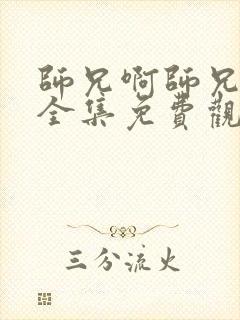 師兄啊師兄
全集免費觀
三分流火